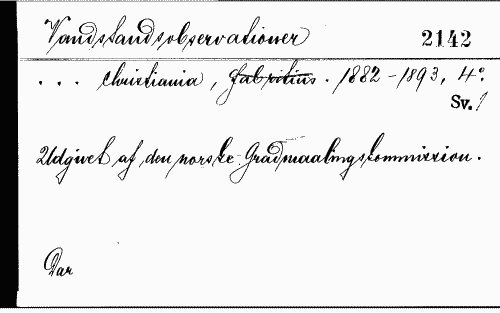 Vandstandsobservationer 2142
... Christiania, Fabritius. 1882-1893, 4º.
Sv. 1
Udgivet af den norske Gradmaalingskommission.
Dar